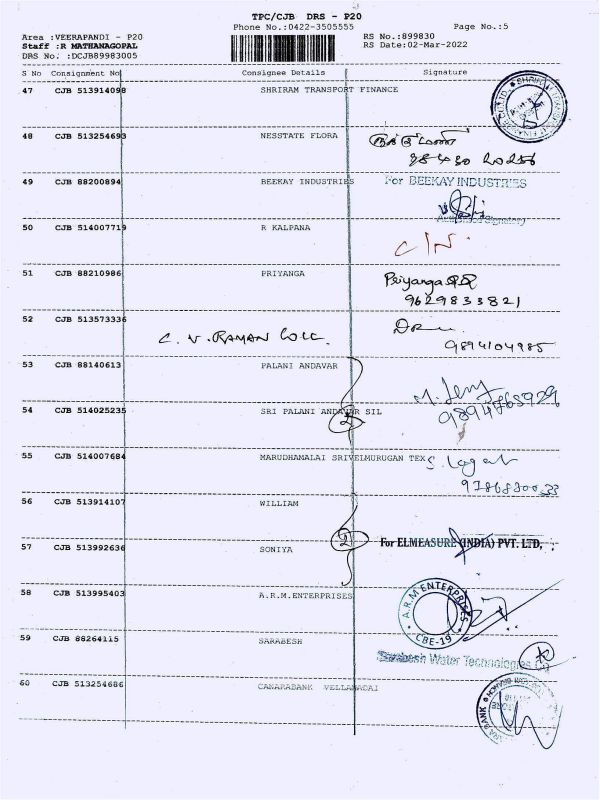 TPC/CJB DRS - P20
Phone No.:0422-3505555 Page No.:5
Area :VEERAPANDI - P20 RS No.:899830
Staff :R MATHANAGOPAL RS Date:02-Mar-2022
DRS No. :DCJB89983005
S No Consignment No Consignee Details Signature
47 CJB 513914098 SHRIRAM TRANSPORT FINANCE
48 CJB 513254693 NESSTATE FLORA
49 CJB 88200894 BEEKAY INDUSTRIES For BEEKAY INDUSTRIES
Authorised Signatory
50 CJB 514007719 R KALPANA
51 CJB 88210986 PRIYANGA Priyanga
9629833821
52 CJB 513573336
C. V. RAMAN 9894104985
53 CJB 88140613 PALANI ANDAVAR
54 CJB 514025235 SRI PALANI ANDAVAR SIL 2
55 CJB 514007684 MARUDHAMALAI SRIVELMURUGAN TEX
56 CJB 513914107 WILLIAM
2 For ELMEASURE (INDIA) PVT. LTD,
57 CJB 513992636 SONIYA
58 CJB 513995403 A.R.M.ENTERPRISES A.R.M ENTERPRISES
CBE-19
59 CJB 88264115 SARABESH
Sarabesh Water Technologies
60 CJB 513254686 CANARABANK VELLAMADAI